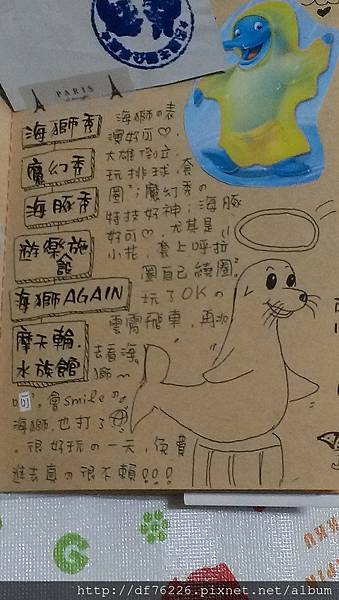 PARIS
海獅秀
魔幻秀
海豚秀
遊樂設施
海獅AGAIN
摩天輪.
水族館
海獅の表
演好可♡,
大雄倒立.
玩排球,套
圈;魔幻秀の
特技好神,海豚
好可♡,尤其是
小花,套上呼拉
圈自己繞圈
玩了OKの
雲霄飛車,再次
去看海
獅~
呵,會smileの
海獅,也打了
。很好玩の一天,免費
進去真の很不賴!!!
G
http://df76226.pixnet.net/album